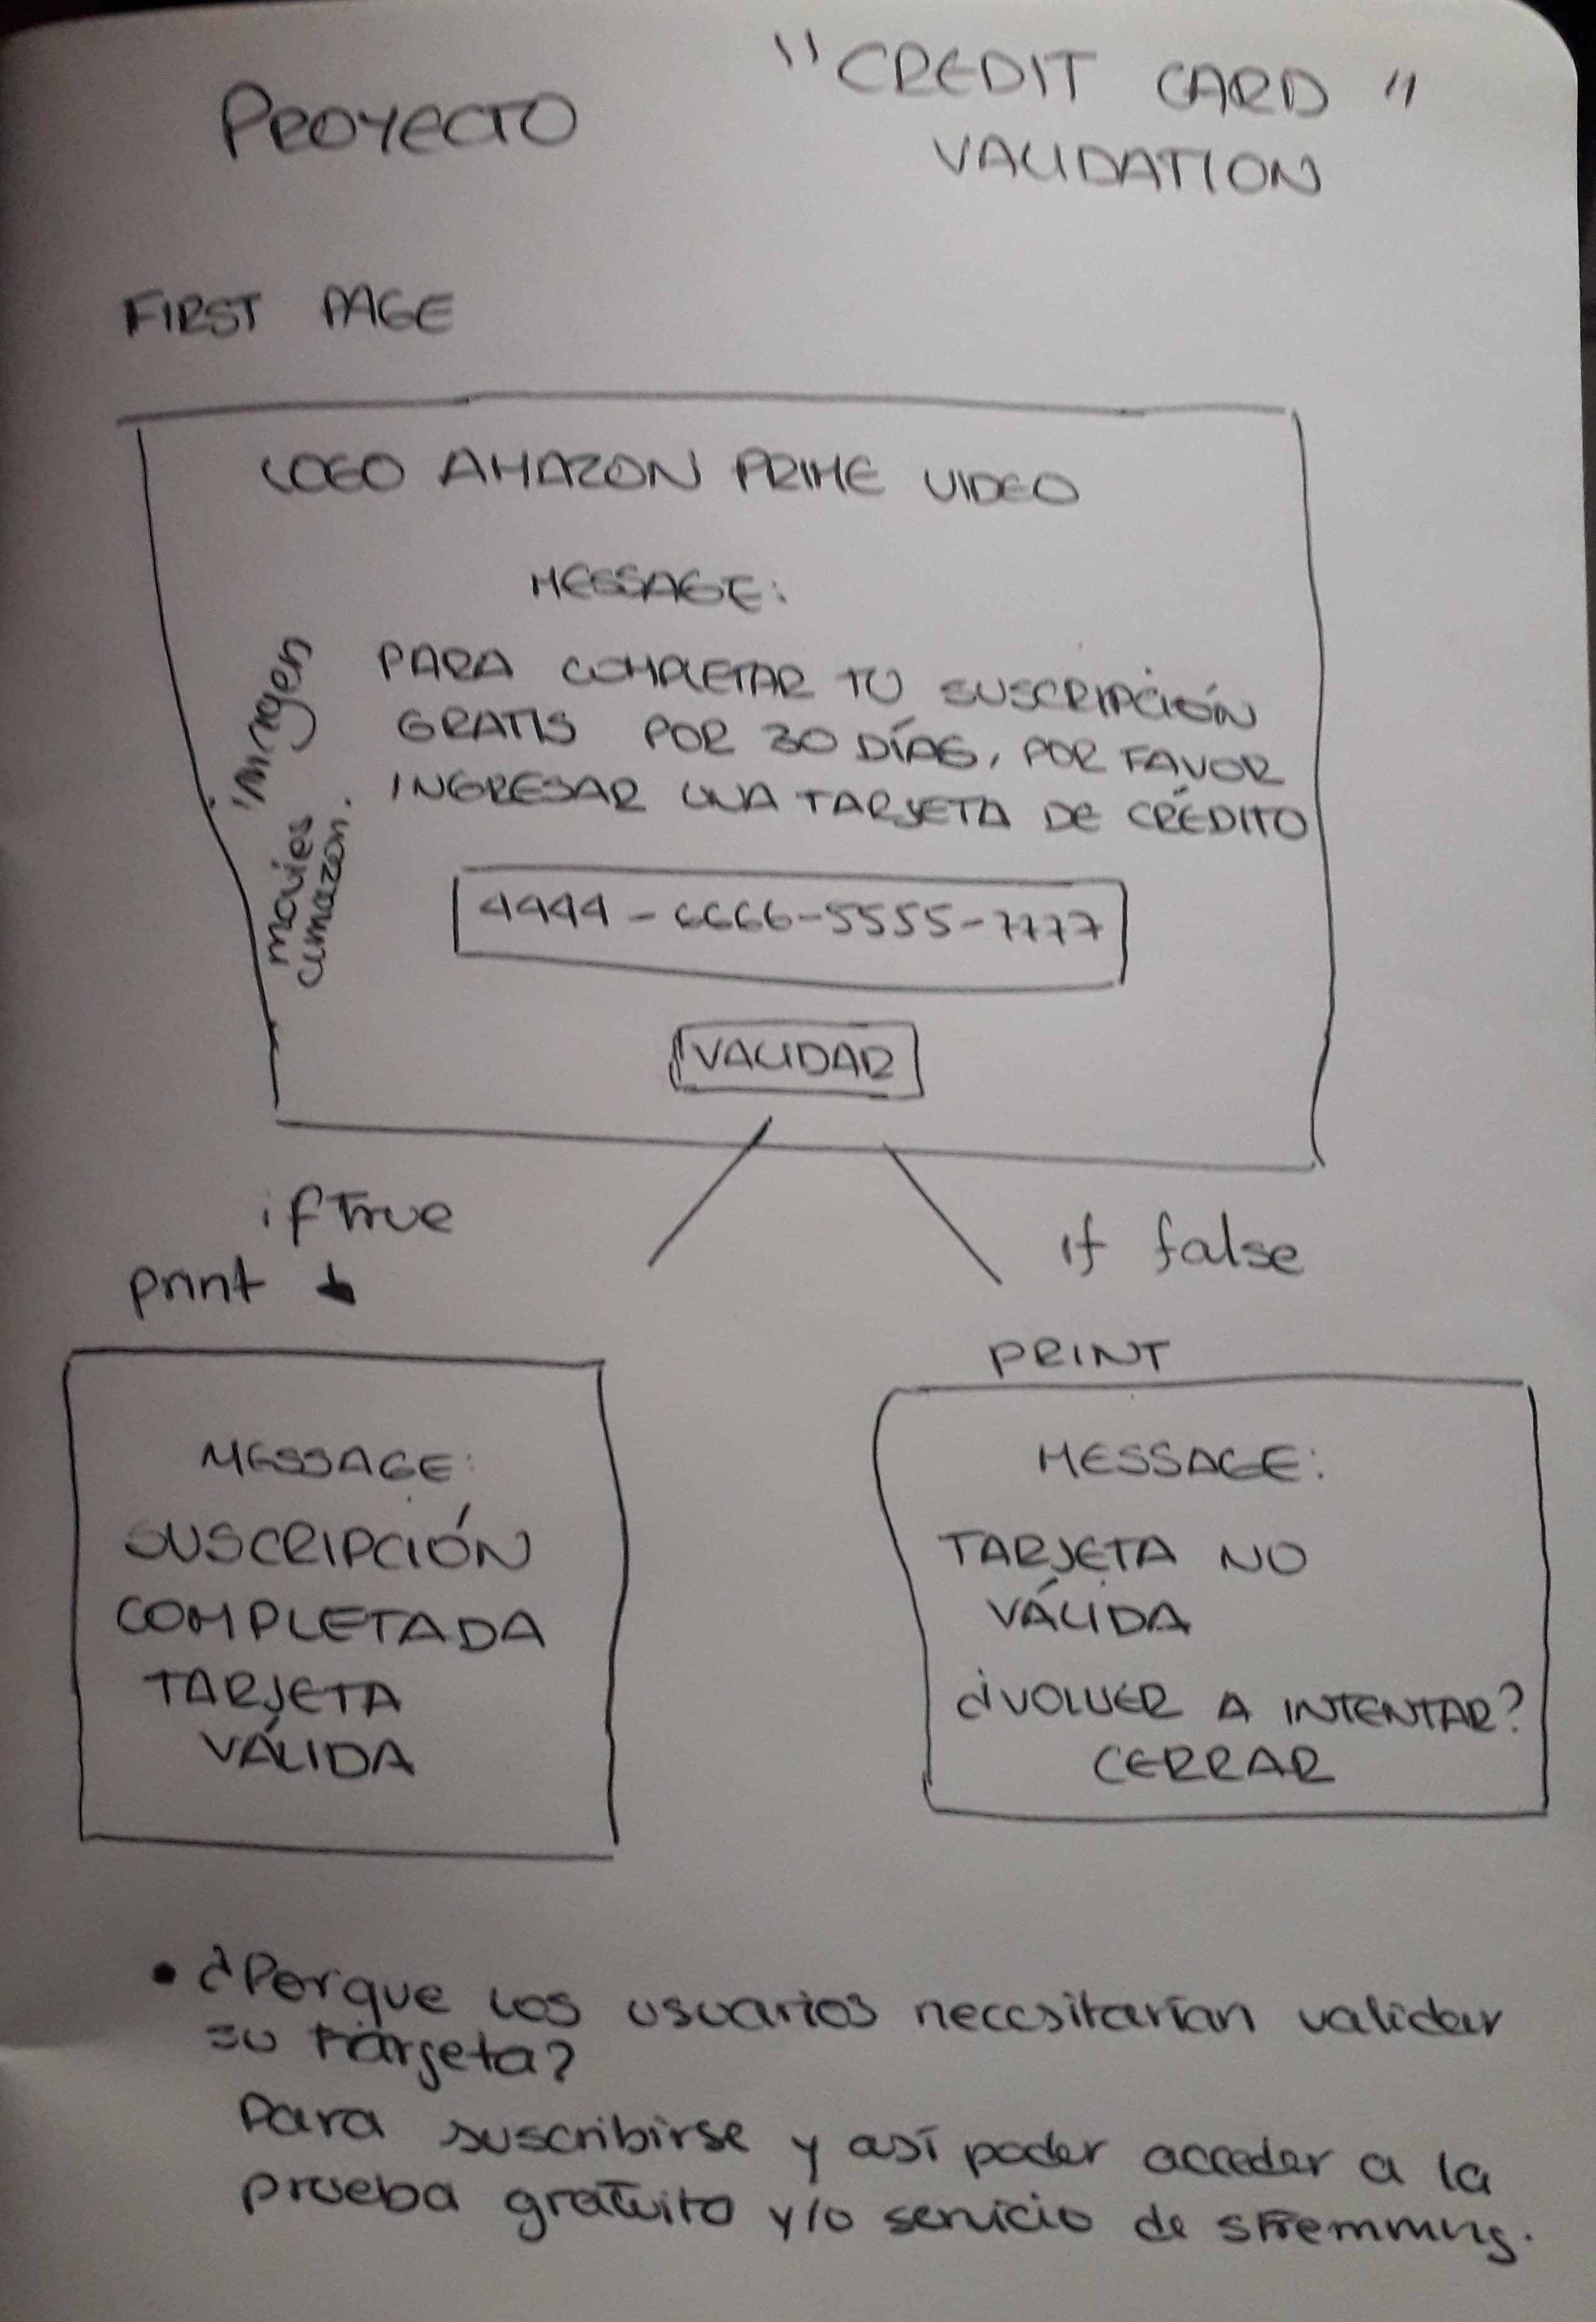 PROYECTO
"CREDIT CARD"
VALIDATION
FIRST PAGE
LOGO AMAZON PRIME VIDEO
MESSAGE:
imagen
movies
amazon.
PARA COMPLETAR TU SUSCRIPCIÓN
GRATIS POR 30 DÍAS, POR FAVOR
INGRESAR UNA TARJETA DE CRÉDITO
4444-6666-5555-7777
VALIDAR
if True
print
if false
PRINT
MESSAGE:
SUSCRIPCIÓN
COMPLETADA
TARJETA
VÁLIDA
MESSAGE:
TARJETA NO
VÁLIDA
¿VOLVER A INTENTAR?
CERRAR
• ¿Porque los usuarios necesitarían validar
su tarjeta?
Para suscribirse y así poder acceder a la
prueba gratuito y/o servicio de